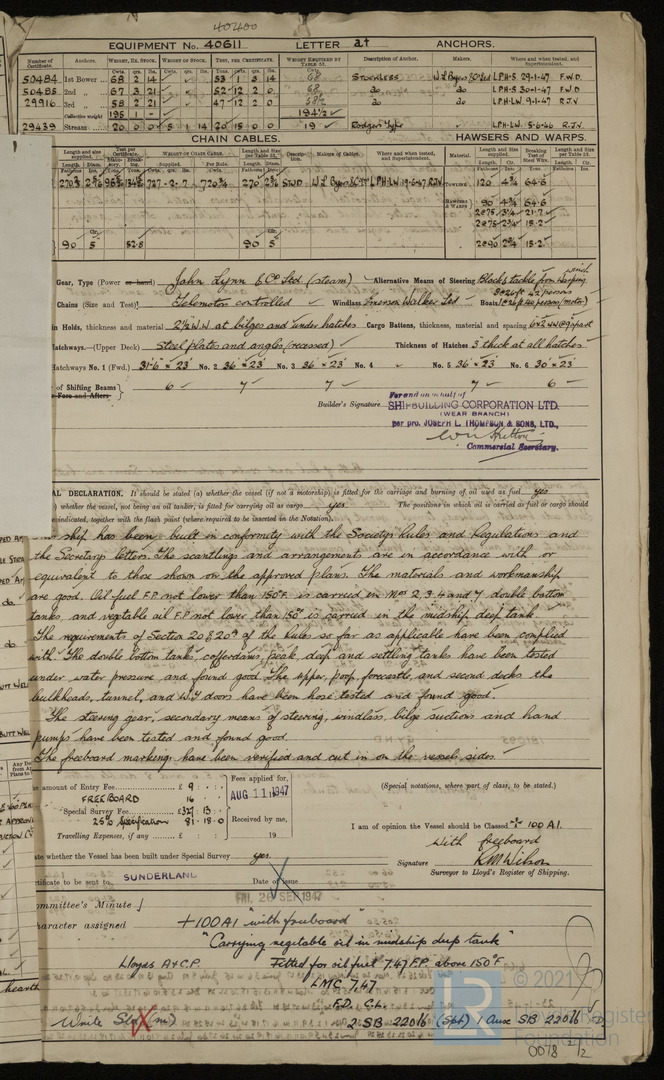 40400
EQUIPMENT No. 40611 LETTER at ANCHORS.
Number of Certificate. Anchors. Weight, Ex. Stock. Weight of Stock. Test, per Certificate. Weight Required by Table 53. Description of Anchor. Makers. Where and when tested, and Superintendent.
Cwts. qrs. lbs.
50484 1st Bower 68 2 14 53 1 3 14 68 Stockless W.L. Byers & Co Ltd LPH-S 29-1-47 F.W.D.
50485 2nd „ 67 3 21 52 12 2 0 68 do do LPH-S 30-1-47 F.W.D
29916 3rd „ 58 2 21 47 12 2 0 58½ do do LPH-LW. 9-1-47 R.J.V
Collective weight 195 1 - 194½
29439 Stream 20 0 0 5 1 14 20 15 0 0 19 Rodgers Type LPH-LW. 5-6-46 R.J.V.
CHAIN CABLES. HAWSERS AND WARPS.
Length and size supplied. Test per Certificate. Weight of Chain Cable. Length and Size per Table 53. Makers of Cables. Where and when tested, and Superintendent. Material. Length and Size supplied. Breaking Test of Steel Wire. Length and Size per Table 53.
Supplied. Per Rule.
727-2-7 720¾ 270 2⅜ STUD W.L. Byers & Co Ltd LPH-LW. 19-6-47 RJV Towline 120 4¾ 64·6
Hawsers & Warps 90 4¾ 64·6
2@75 3¼ 21·7
2@75 2¾ 15·2
90 5 52·8 90 5 2@90 2¾ 15·2
Gear, Type (Power or hand) John Lynn & Co Ltd (steam) Alternative Means of Steering Blocks & tackle from warping winch
Chains (Size and Test) Telemotor controlled Windlass Emerson Walker Ltd Boats
in Holds, thickness and material 2½ W.W at bilges and under hatches Cargo Battens, thickness, material and spacing 6x2 WW @ 9 apart
Hatchways.—(Upper Deck) Steel plates and angles (recessed) Thickness of Hatches 3" thick at all hatches
Hatchways No. 1 (Fwd.) 31-6 x 23' No. 2 36' x 23' No. 3 36' x 23' No. 4 No. 5 36' x 23' No. 6 30' x 23'
of Shifting Beams 6 7 7 7 6
or Fore and Afters
Builder's Signature For and on behalf of
SHIPBUILDING CORPORATION LTD.
(WEAR BRANCH)
per pro. JOSEPH L. THOMPSON & SONS, LTD.,
Commercial Secretary.
AL DECLARATION. It should be stated (a) whether the vessel (if not a motorship) is fitted for the carriage and burning of oil used as fuel yes
whether the vessel, not being an oil tanker, is fitted for carrying oil as cargo yes The positions in which oil is carried as fuel or cargo should
indicated, together with the flash point (where required to be inserted in the Notation).
ship has been built in conformity with the Society's Rules and Regulations and
the Secretary letters. The scantlings and arrangements are in accordance with or
equivalent to those shown on the approved plans. The materials and workmanship
are good. Oil fuel F.P. not lower than 150°F is carried in Nos 2. 3. 4 and 7 double bottom
tanks, and vegetable oil F.P not lower than 150° is carried in the midship deep tank
The requirements of Section 20 & 20a of the Rules so far as applicable have been complied
with. The double bottom tanks, cofferdams, peak, deep and settling tanks have been tested
under water pressure and found good. The upper, poop, forecastle, and second decks the
bulkheads, tunnel, and W.T doors have been hose tested and found good.
The steering gear, secondary means of steering, windlass, bilge suctions and hand
pumps have been tested and found good.
The freeboard markings have been verified and cut in on the vessels sides.
amount of Entry Fee £ 9 : Fees applied for,
FREEBOARD 16 AUG 11 1947
Special Survey Fee £327 : 13 :
25% Specification 81 · 18 · 0 Received by me,
Travelling Expenses, if any £ : : 19
(Special notations, where part of class, to be stated.)
I am of opinion the Vessel should be Classed +100 A1.
With freeboard
Signature R M Wilson
Surveyor to Lloyd's Register of Shipping.
State whether the Vessel has been built under Special Survey yes.
Certificate to be sent to SUNDERLAND Date of issue
FRI. 26 SEP 1947
Committee's Minute
Character assigned +100A1 "with freeboard"
"Carrying vegetable oil in midship deep tank"
Lloyds A & C.P. Fitted for oil fuel 7.47 F.P. above 150°F
LMC 7,47
F.D. C.L.
Write 2 SB 220 lb (Spt) 1 Aux SB 220 lb D
© 2021
LR Lloyd's Register Foundation
0078 ½